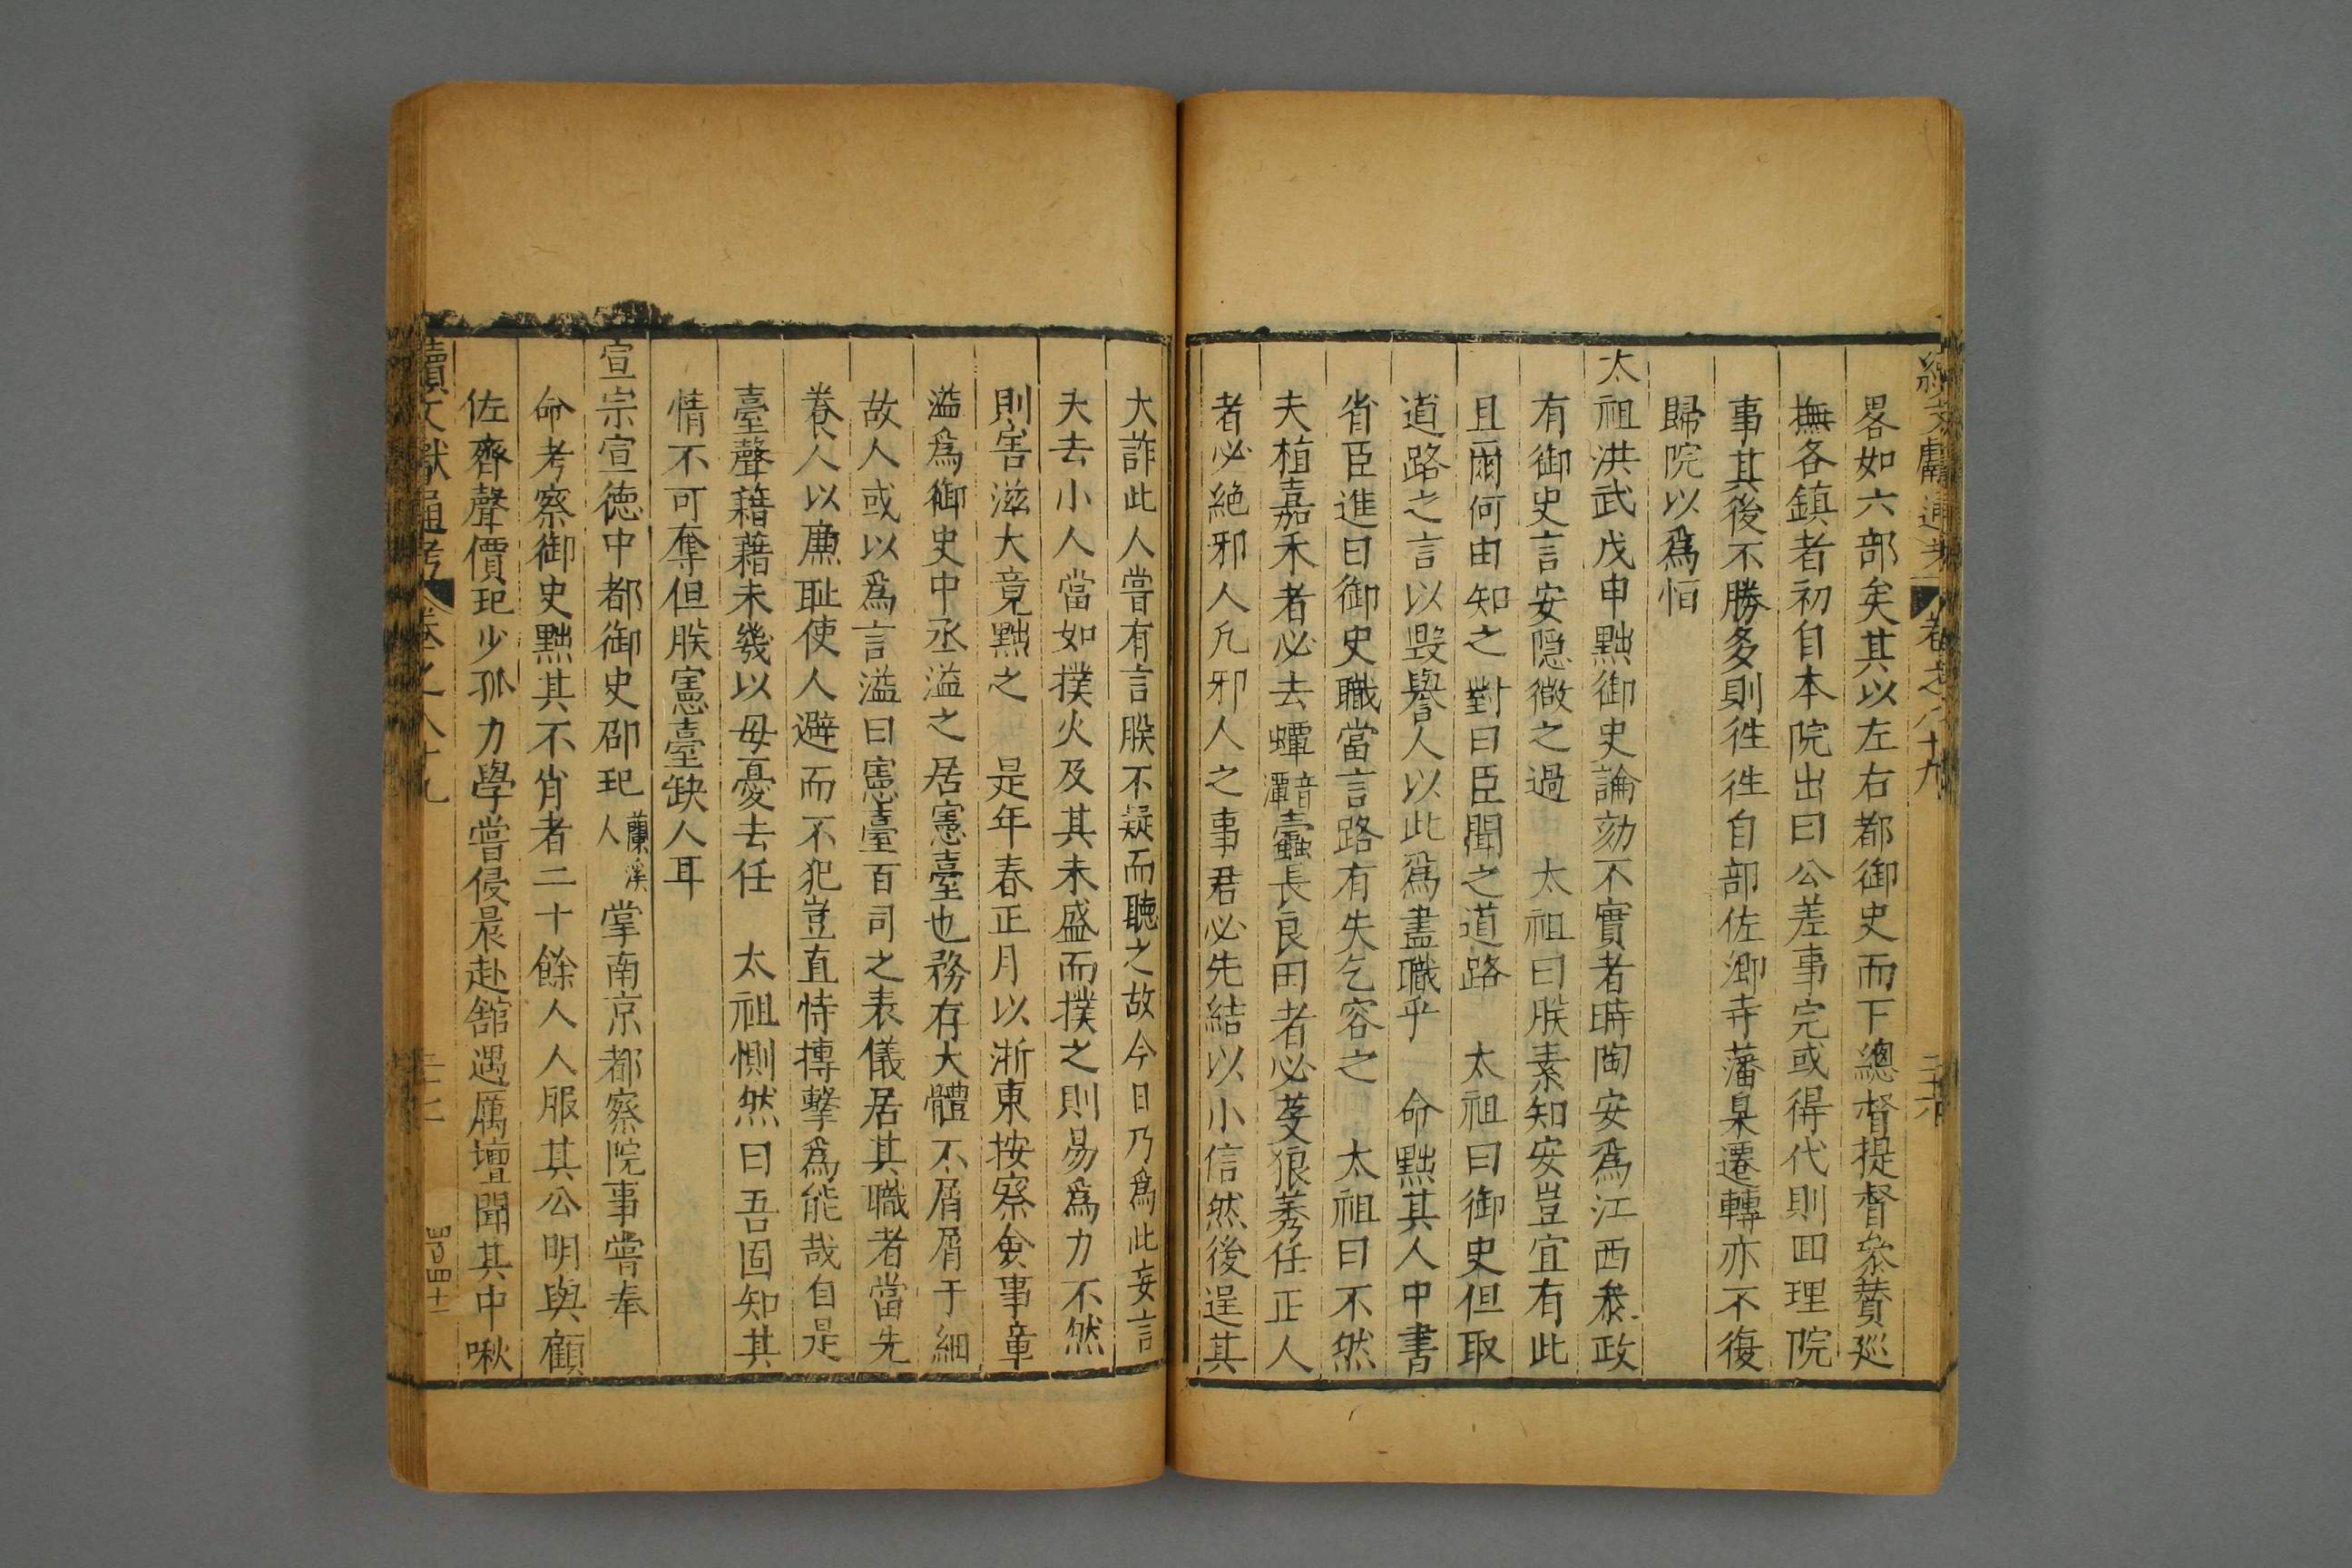 續文獻通考 卷之八十九 二十六
畧如六部矣其以左右都御史而下總督提督叅贊廵
撫各鎮者初自本院出曰公差事完或得代則囬理院
事其後不勝多則徃徃自部佐卿寺藩臬遷轉亦不復
歸院以爲恒
太祖洪武戊申黜御史論劾不實者時陶安爲江西叅政
有御史言安隠微之過　太祖曰朕素知安豈宜有此
且爾何由知之對曰臣聞之道路　太祖曰御史但取
道路之言以毀譽人以此爲盡職乎　命黜其人中書
省臣進曰御史職當言路有失乞容之　太祖曰不然
夫植嘉禾者必去蟫音潭蠧長良田者必芟狼莠任正人
者必絶邪人凢邪人之事君必先結以小信然後逞其
大詐此人嘗有言朕不疑而聽之故今日乃爲此妄言
夫去小人當如撲火及其未盛而撲之則易爲力不然
則害滋大竟黜之　是年春正月以浙東按察僉事章
溢爲御史中丞溢之居憲臺也務存大體不屑屑于細
故人或以爲言溢曰憲臺百司之表儀居其職者當先
養人以廉耻使人避而不犯豈直恃搏擊爲能哉自是
臺聲籍藉未幾以母憂去任　太祖惻然曰吾固知其
情不可奪但朕憲臺缺人耳
宣宗宣德中都御史邵玘蘭溪人掌南京都察院事嘗奉
命考察御史黜其不肖者二十餘人人服其公明與顧
佐齊聲價玘少孤力學嘗侵晨赴舘遇厲壇聞其中啾
續文獻通考 卷之八十九 二十七